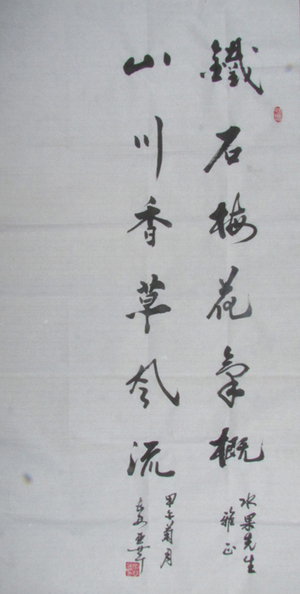 鐵石梅花氣概
水果先生
雅正
山川香草風流
甲午菊月